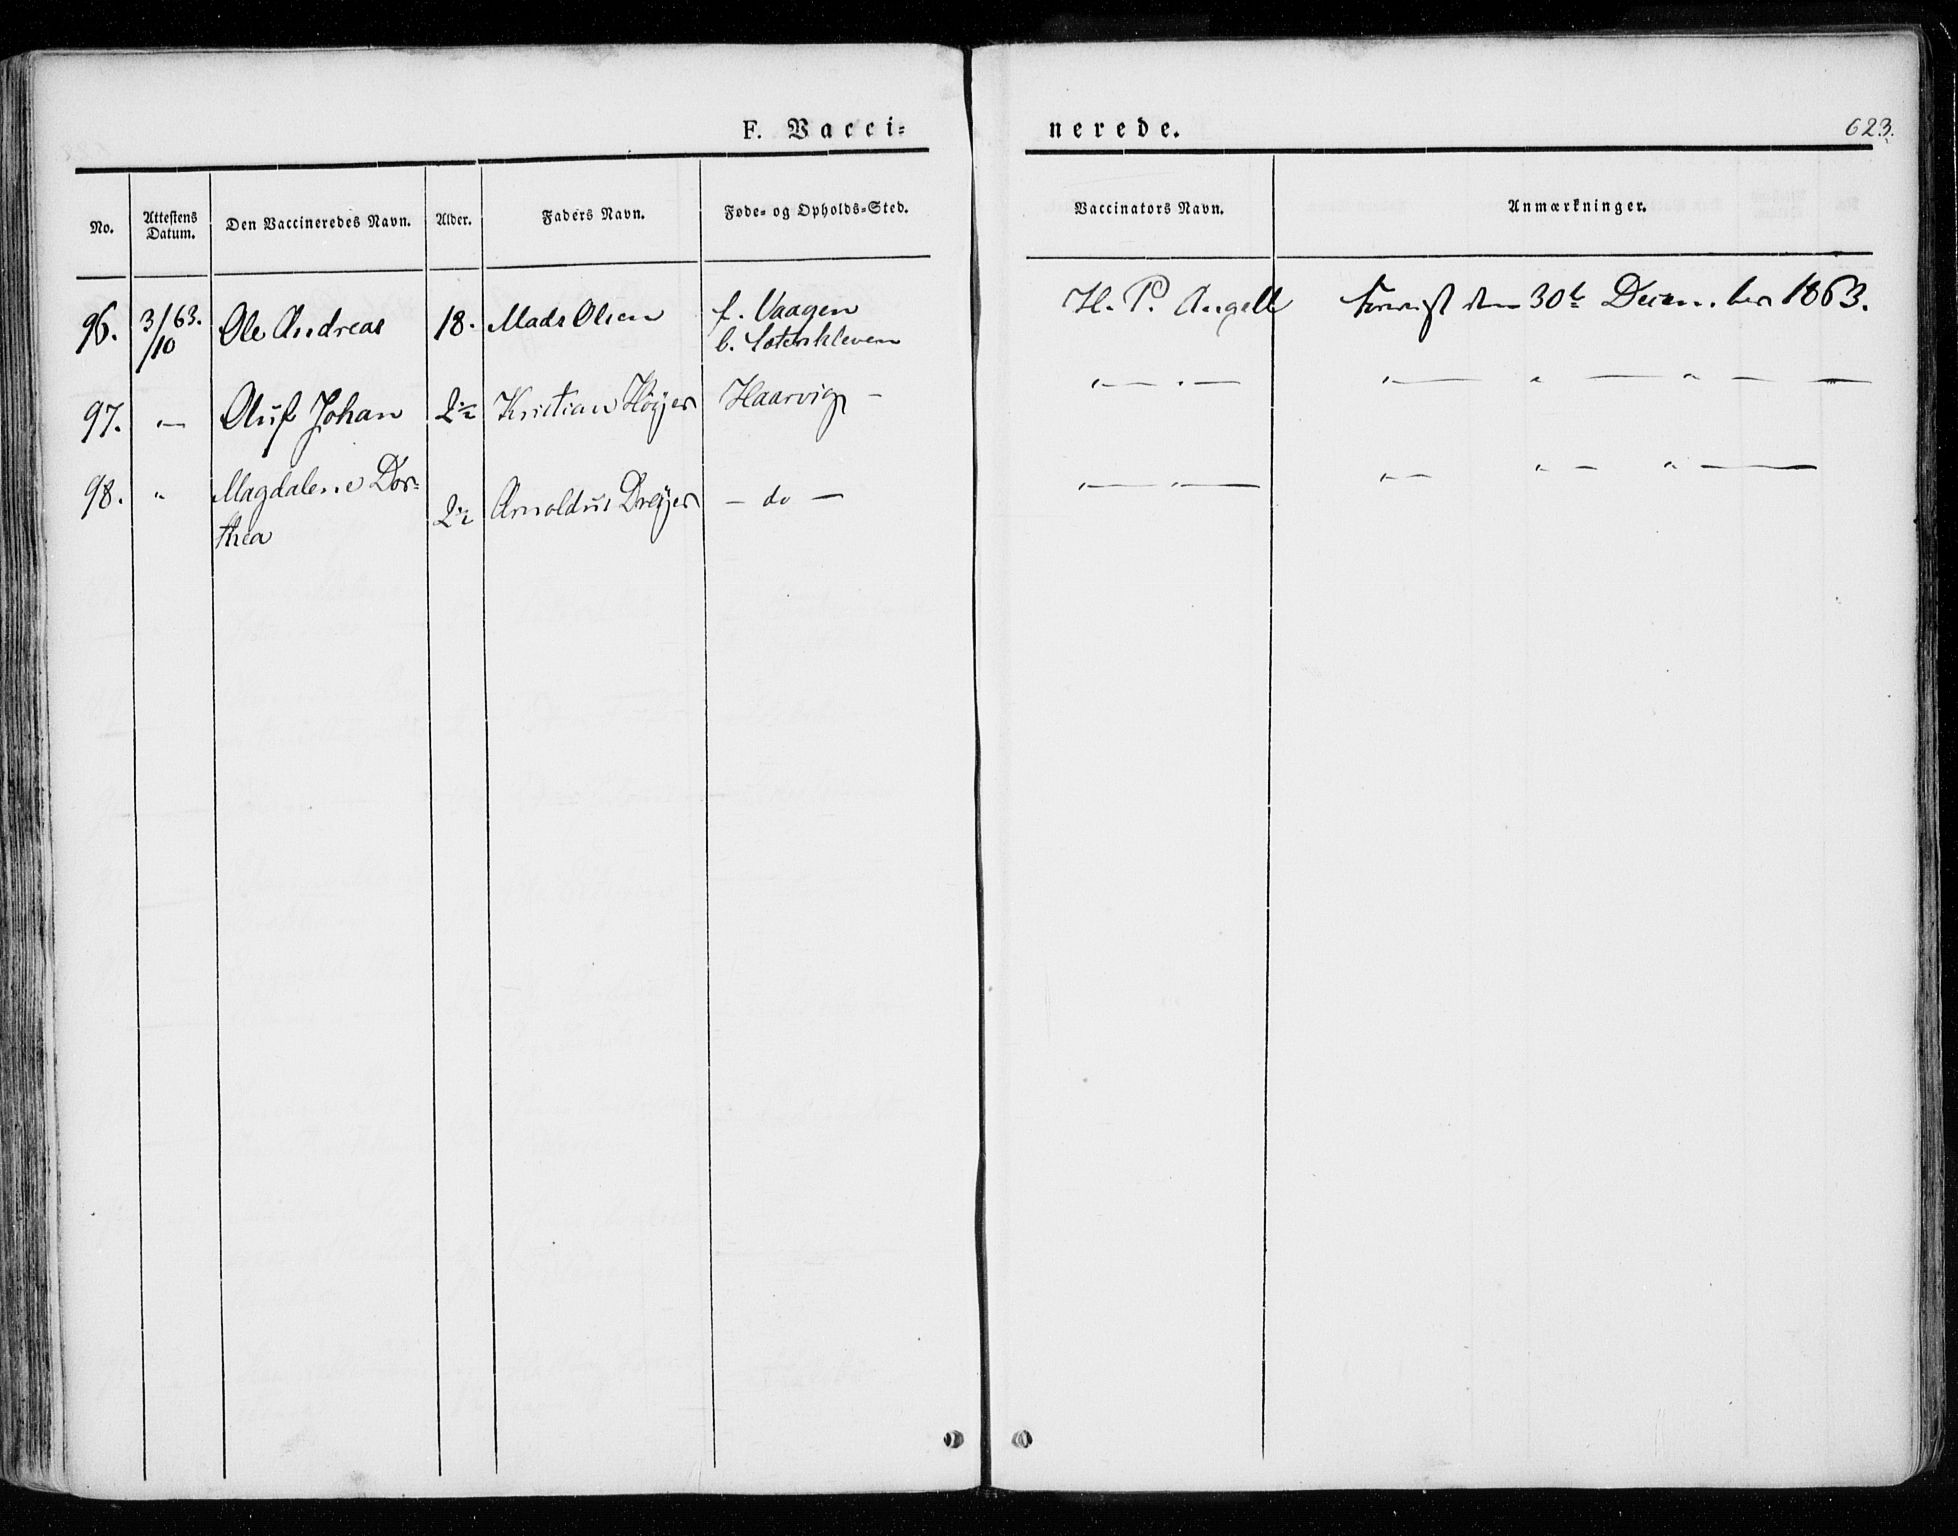 F. Vacci=
nerede.
623.
No.
Attestens Datum.
Den Vaccineredes Navn.
Alder.
Faders Navn.
Føde= og Opholds=Sted.
Vaccinators Navn.
Anmærkninger.
96. 3/10 63. Ole Andreas 18. Mads Olsen f. Vaagen
b.
H. P. Angell den 30te December 1863.
97. — Oluf Johan 2½ Kristian Höyer Haarvig —
— " — " — " — " — —
98. " Magdalene Dor=
thea 2½ Arnoldus Dreyer — do —
— " — " — " — " —